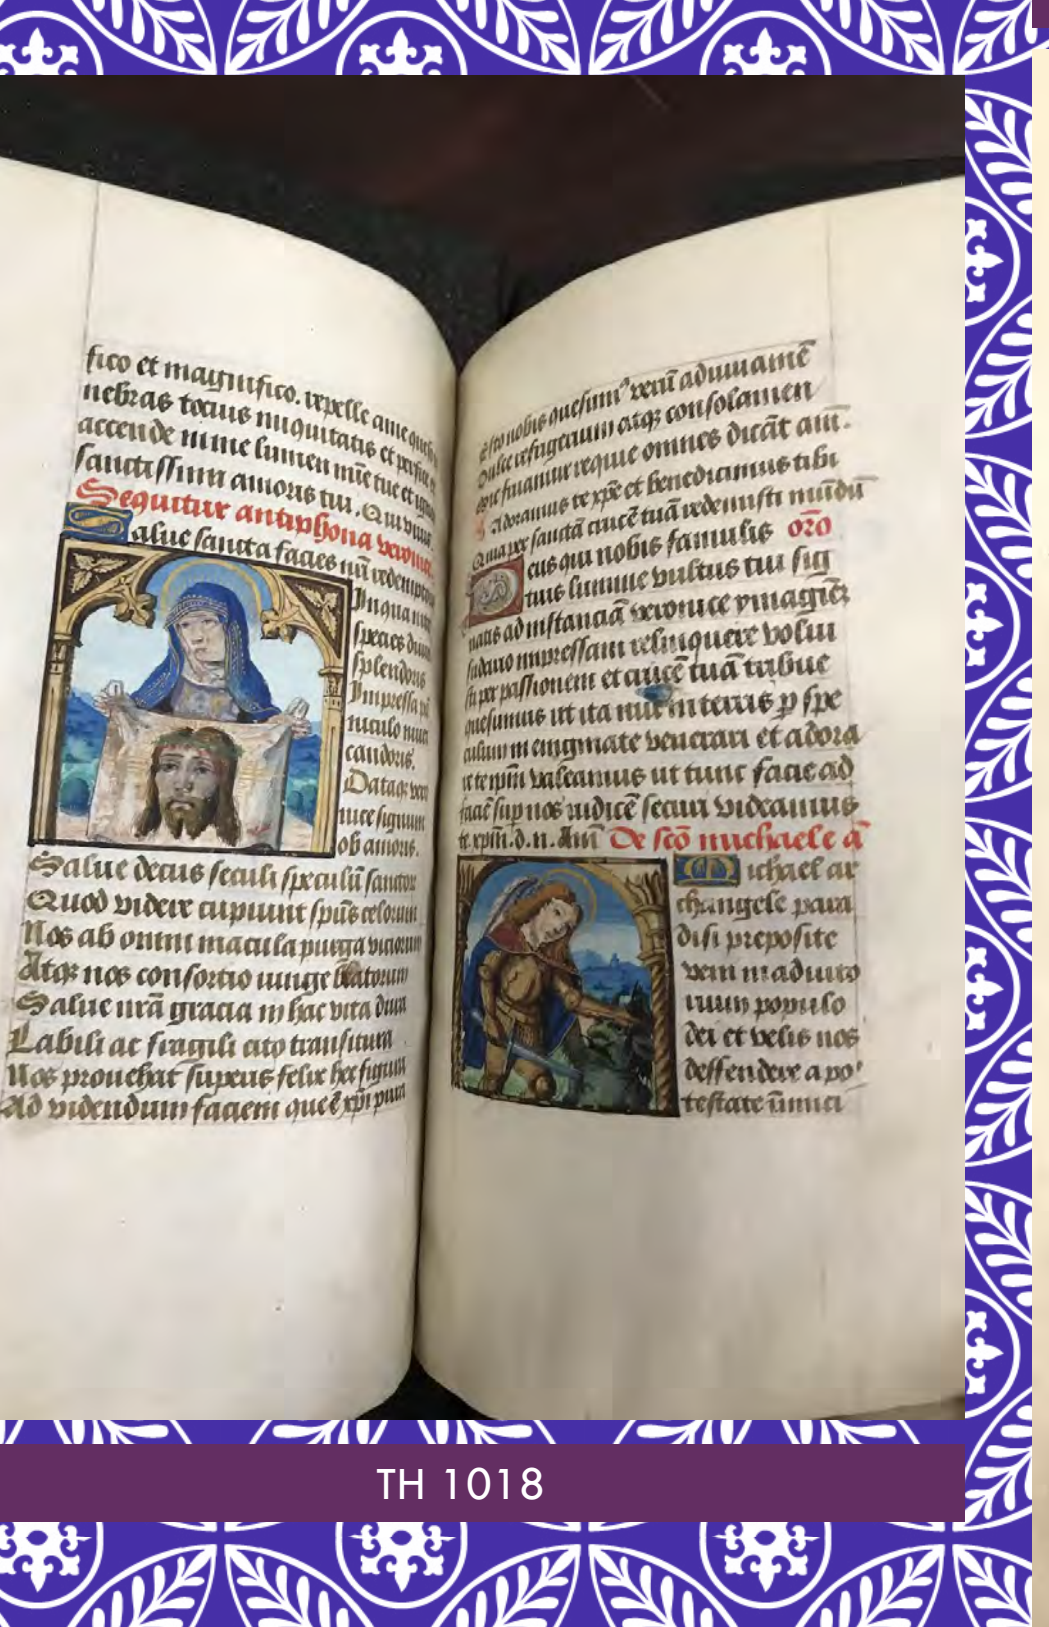 fico et magnifico. repelle a me quesu
nebras tocius iniquitatis et perfice
accende in me lumen mēte tue et igne
sanctissimi amoris tui. Qui viuis
Sequitur antiphona veronice
Salue sancta facies nr̄i redemptoris
In qua nitet
species diuini
splendoris
Impressa pā
niculo niuei
candoris.
Dataqz vero
nice signum
ob amoris.
Salue decus seculi speculū sanctor
Quod videre cupiunt spūs celorum
Nos ab omni macula purga viciorum
Atqz nos consortio iunge beatorum
Salue nrā gracia in hac vita dura
Labili ac fragili cito transitura
Nos prouehat superis felix hec figura
Ad videndum faciem que ē xp̄i pura
Esto nobis quesumꝰ verū adiuuamē
Dulce refrigerium atqz consolamen
fruamur requie omnes dicāt am̄.
Adoramus te xp̄e et benedicimus tibi
Quia per sanctā crucē tuā redemisti mūdū
oro
Deus qui nobis famulis
tuis lumine vultus tui sig
natis ad instanciā veronice ymaginē
sudario impressam relinquere volui
sti per passionem et crucē tuā tribue
quesumus ut ita nūc in terris p spe
culum in enigmate venerari et adora
re te ip̄m valeamus ut tunc facie ad
faciē sup nos iudicē securi videamus
te xp̄m. d. n. Am̄ De sc̄o michaele ā
Michael ar
changele para
disi preposite
veni in adiuto
rium populo
dei et velis nos
deffendere a po
testate inimici
TH 1018